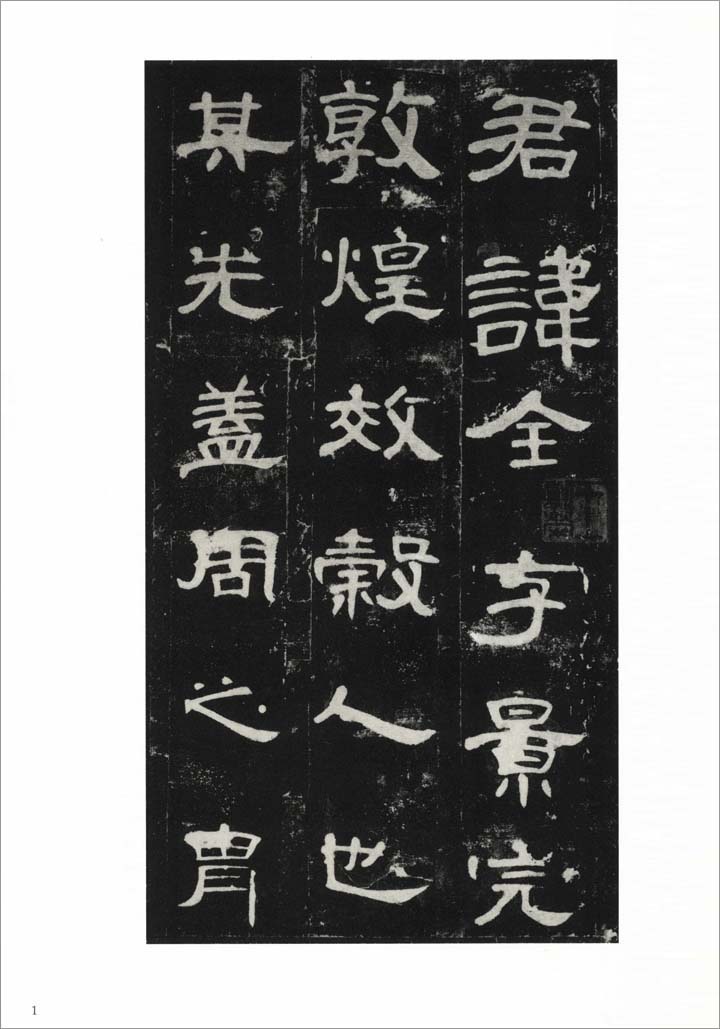 君諱全字景完
敦煌效穀人也
其先蓋周之冑
1